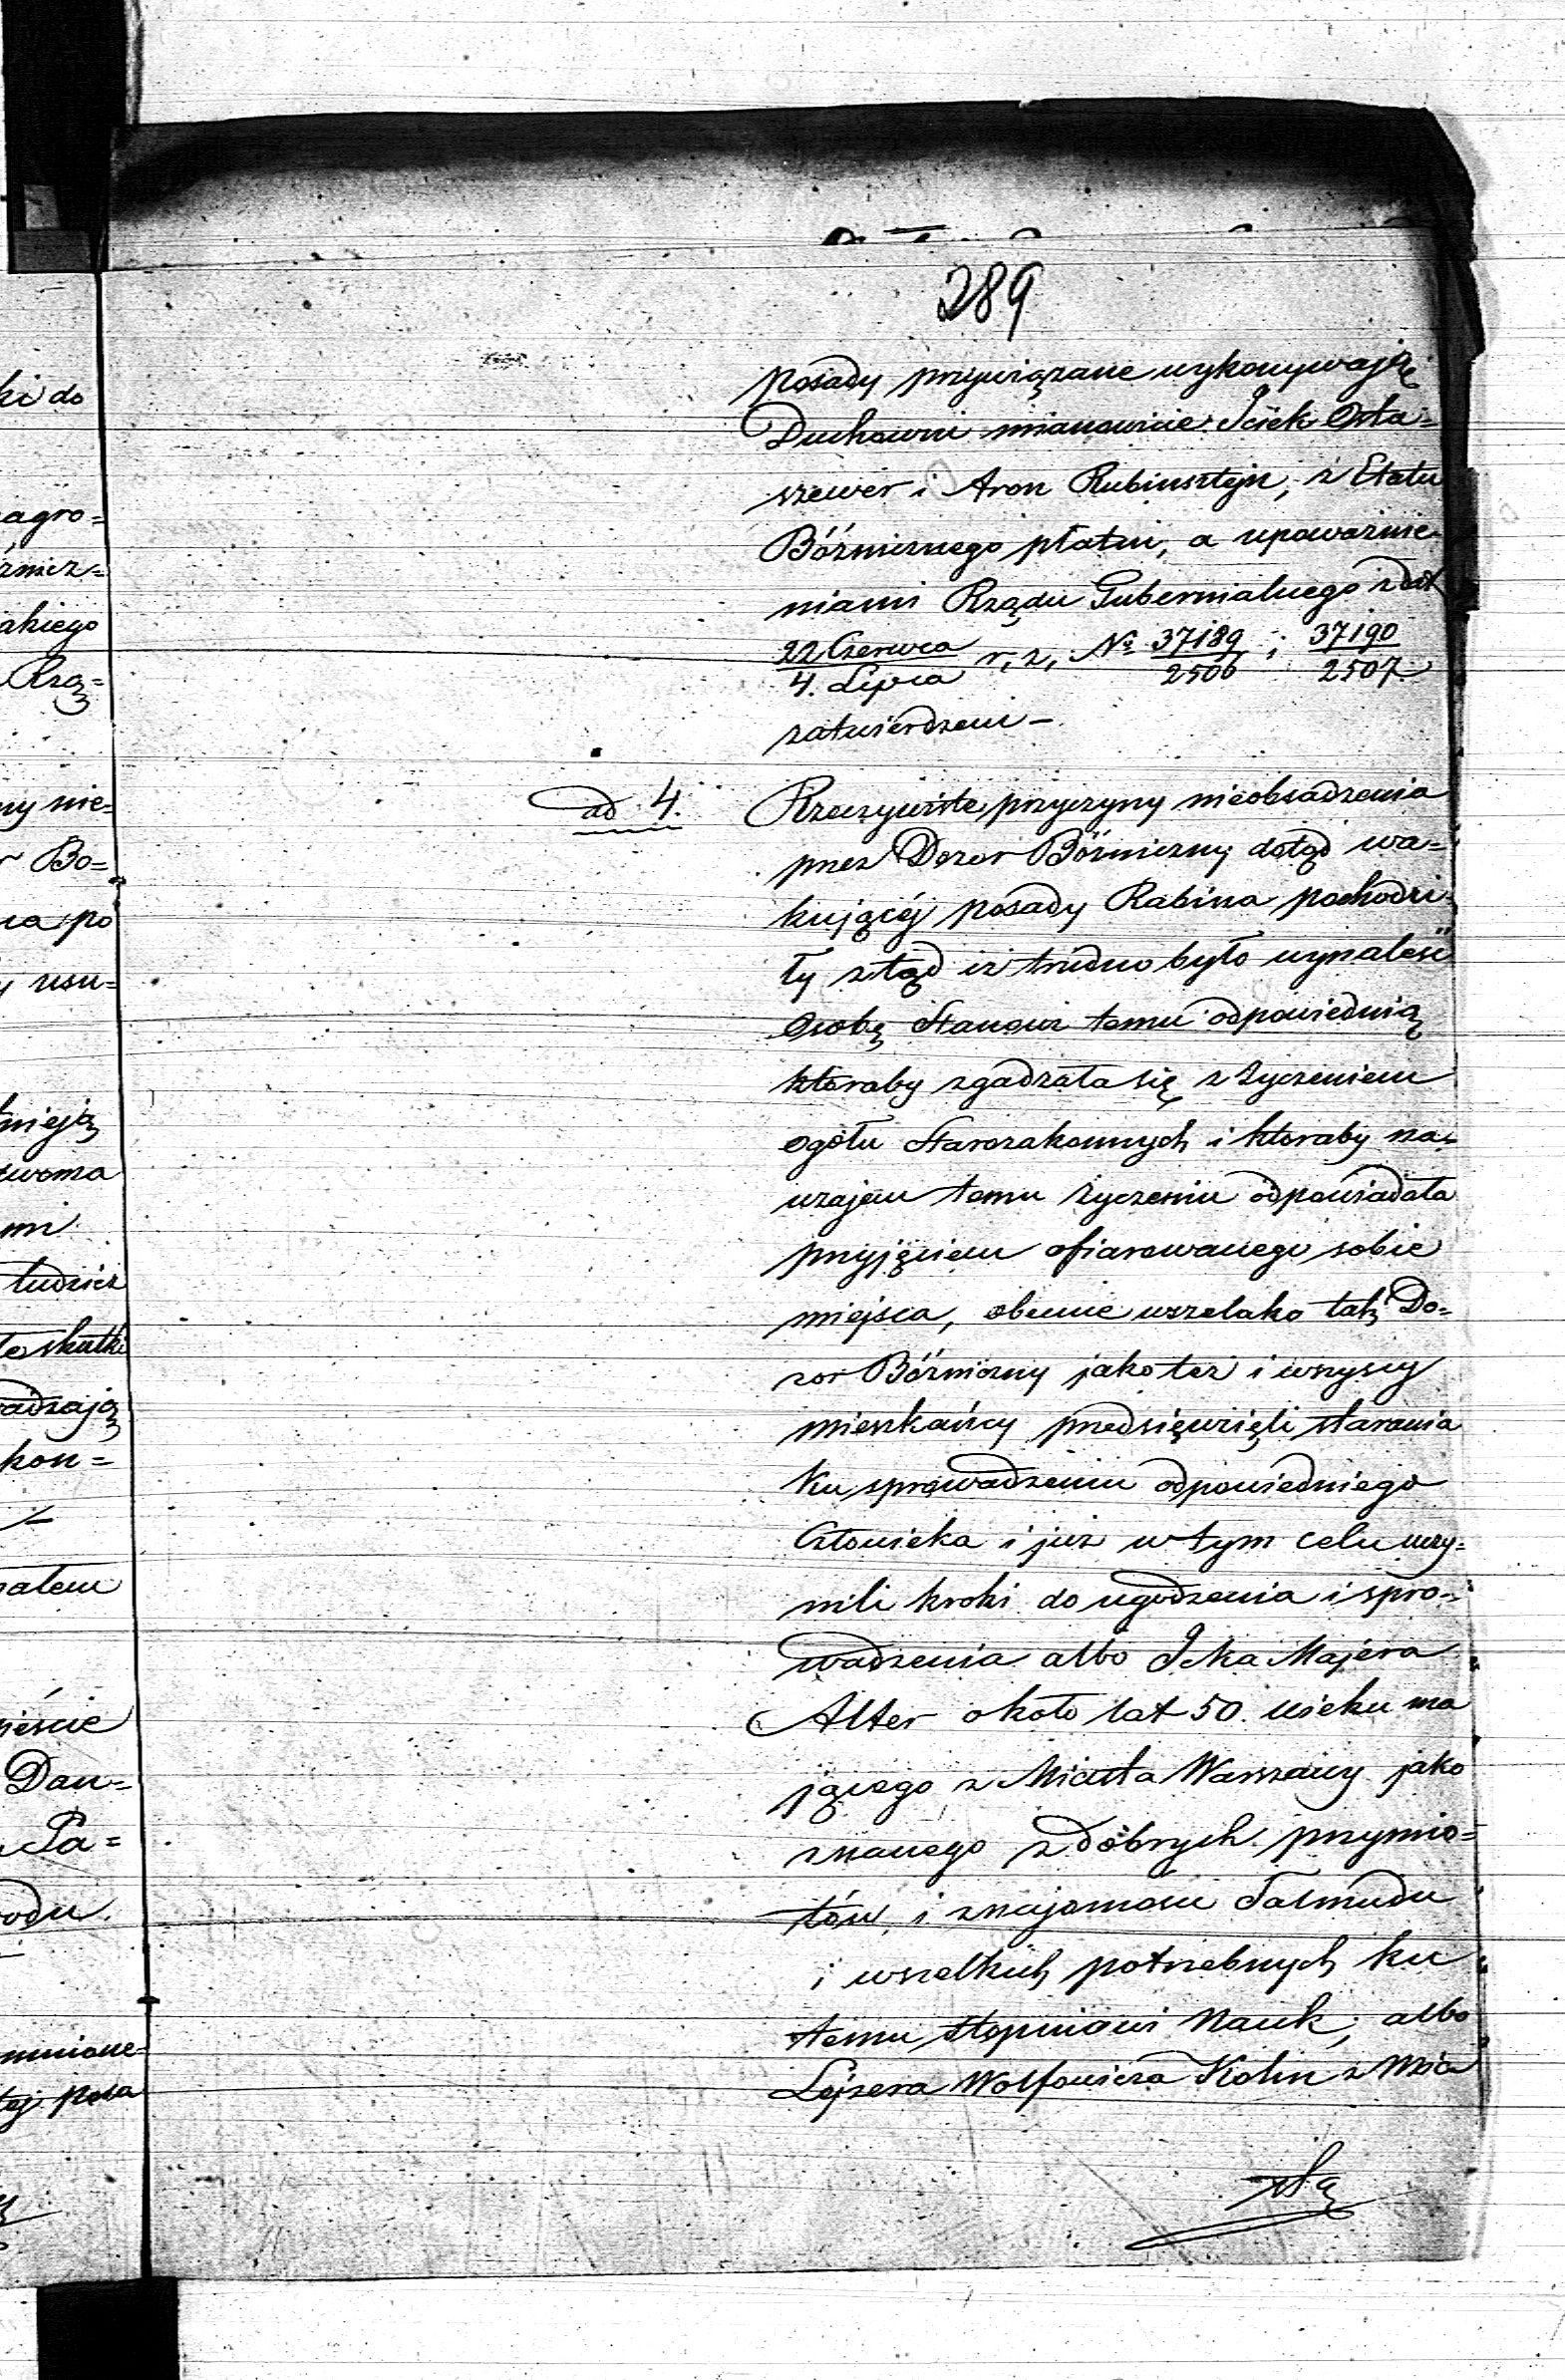 289
posady przywiązane wykonywają
Duchowni mianowicie Jciek Osta=
szewer i Aron Rubinsztejn, z Etatu
Bóżnicznego płatni, a upoważnie
niami Rządu Gubernialnego z dat
22 Czerwca / 4. Lipca r, z, № 37189 / 2506 i 37190 / 2507
zatwierdzeni –
ad 4. Rzeczywiste przyczyny nieobsadzenia
przez Dozor Bóżniczny dotąd wa=
kującéj posady Rabina pochodzi=
ły ztąd iż trudno było wynaleść
Osobę Stanowi temu odpowiednią
któraby zgadzała się z życzeniem
ogółu Starozakonnych i któraby na=
wzajem temu życzeniu odpowiadała
przyjęciem ofiarowanego sobie
miejsca, obecnie wszelako tak Do=
zor Bóżniczny jako też i wszyscy
mieszkańcy przedsięwzięli starania
Ku sprowadzeniu odpowiedniego
Człowieka i już w tym celu uczy=
nili kroki do ugodzenia i spro=
wadzenia albo Icka Majera
Alter około lat 50. wieku ma
jącego z Miasta Warszawy jako
znanego z dobrych przymio=
tów, i znajomości Talmudu
i wszelkich potrzebnych ku
temu stopniowi Nauk, albo
Lejzera Wolfowicza Kohn z Mia
sta
ki do
agro=
żnicz=
akiego
Rzą=
ny nie=
Bo=
na po
usu=
nieją
dwoma
mi
tudzież
skutki
adzają
kon=
zatem
ieście
Dan=
Pa=
odu
mnione
tej